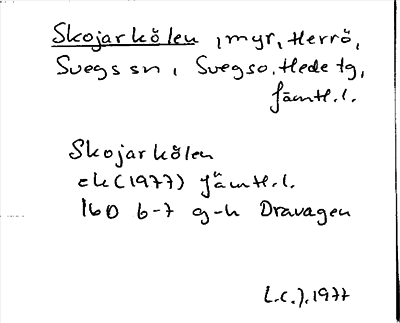 Skojarkölen, myr, Herrö,
Svegs sn, Svegso. Hede tg,
Jämtl.l.
Skojarkölen
ek (1977) Jämtl.l.
16D 6-7 g-h Dravagen
L.C.J. 1977